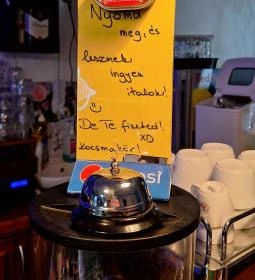 Nyomd
meg, és
lesznek
ingyen
italok!
De Te fizeted!
XD
Kocsmakér!
pepsi